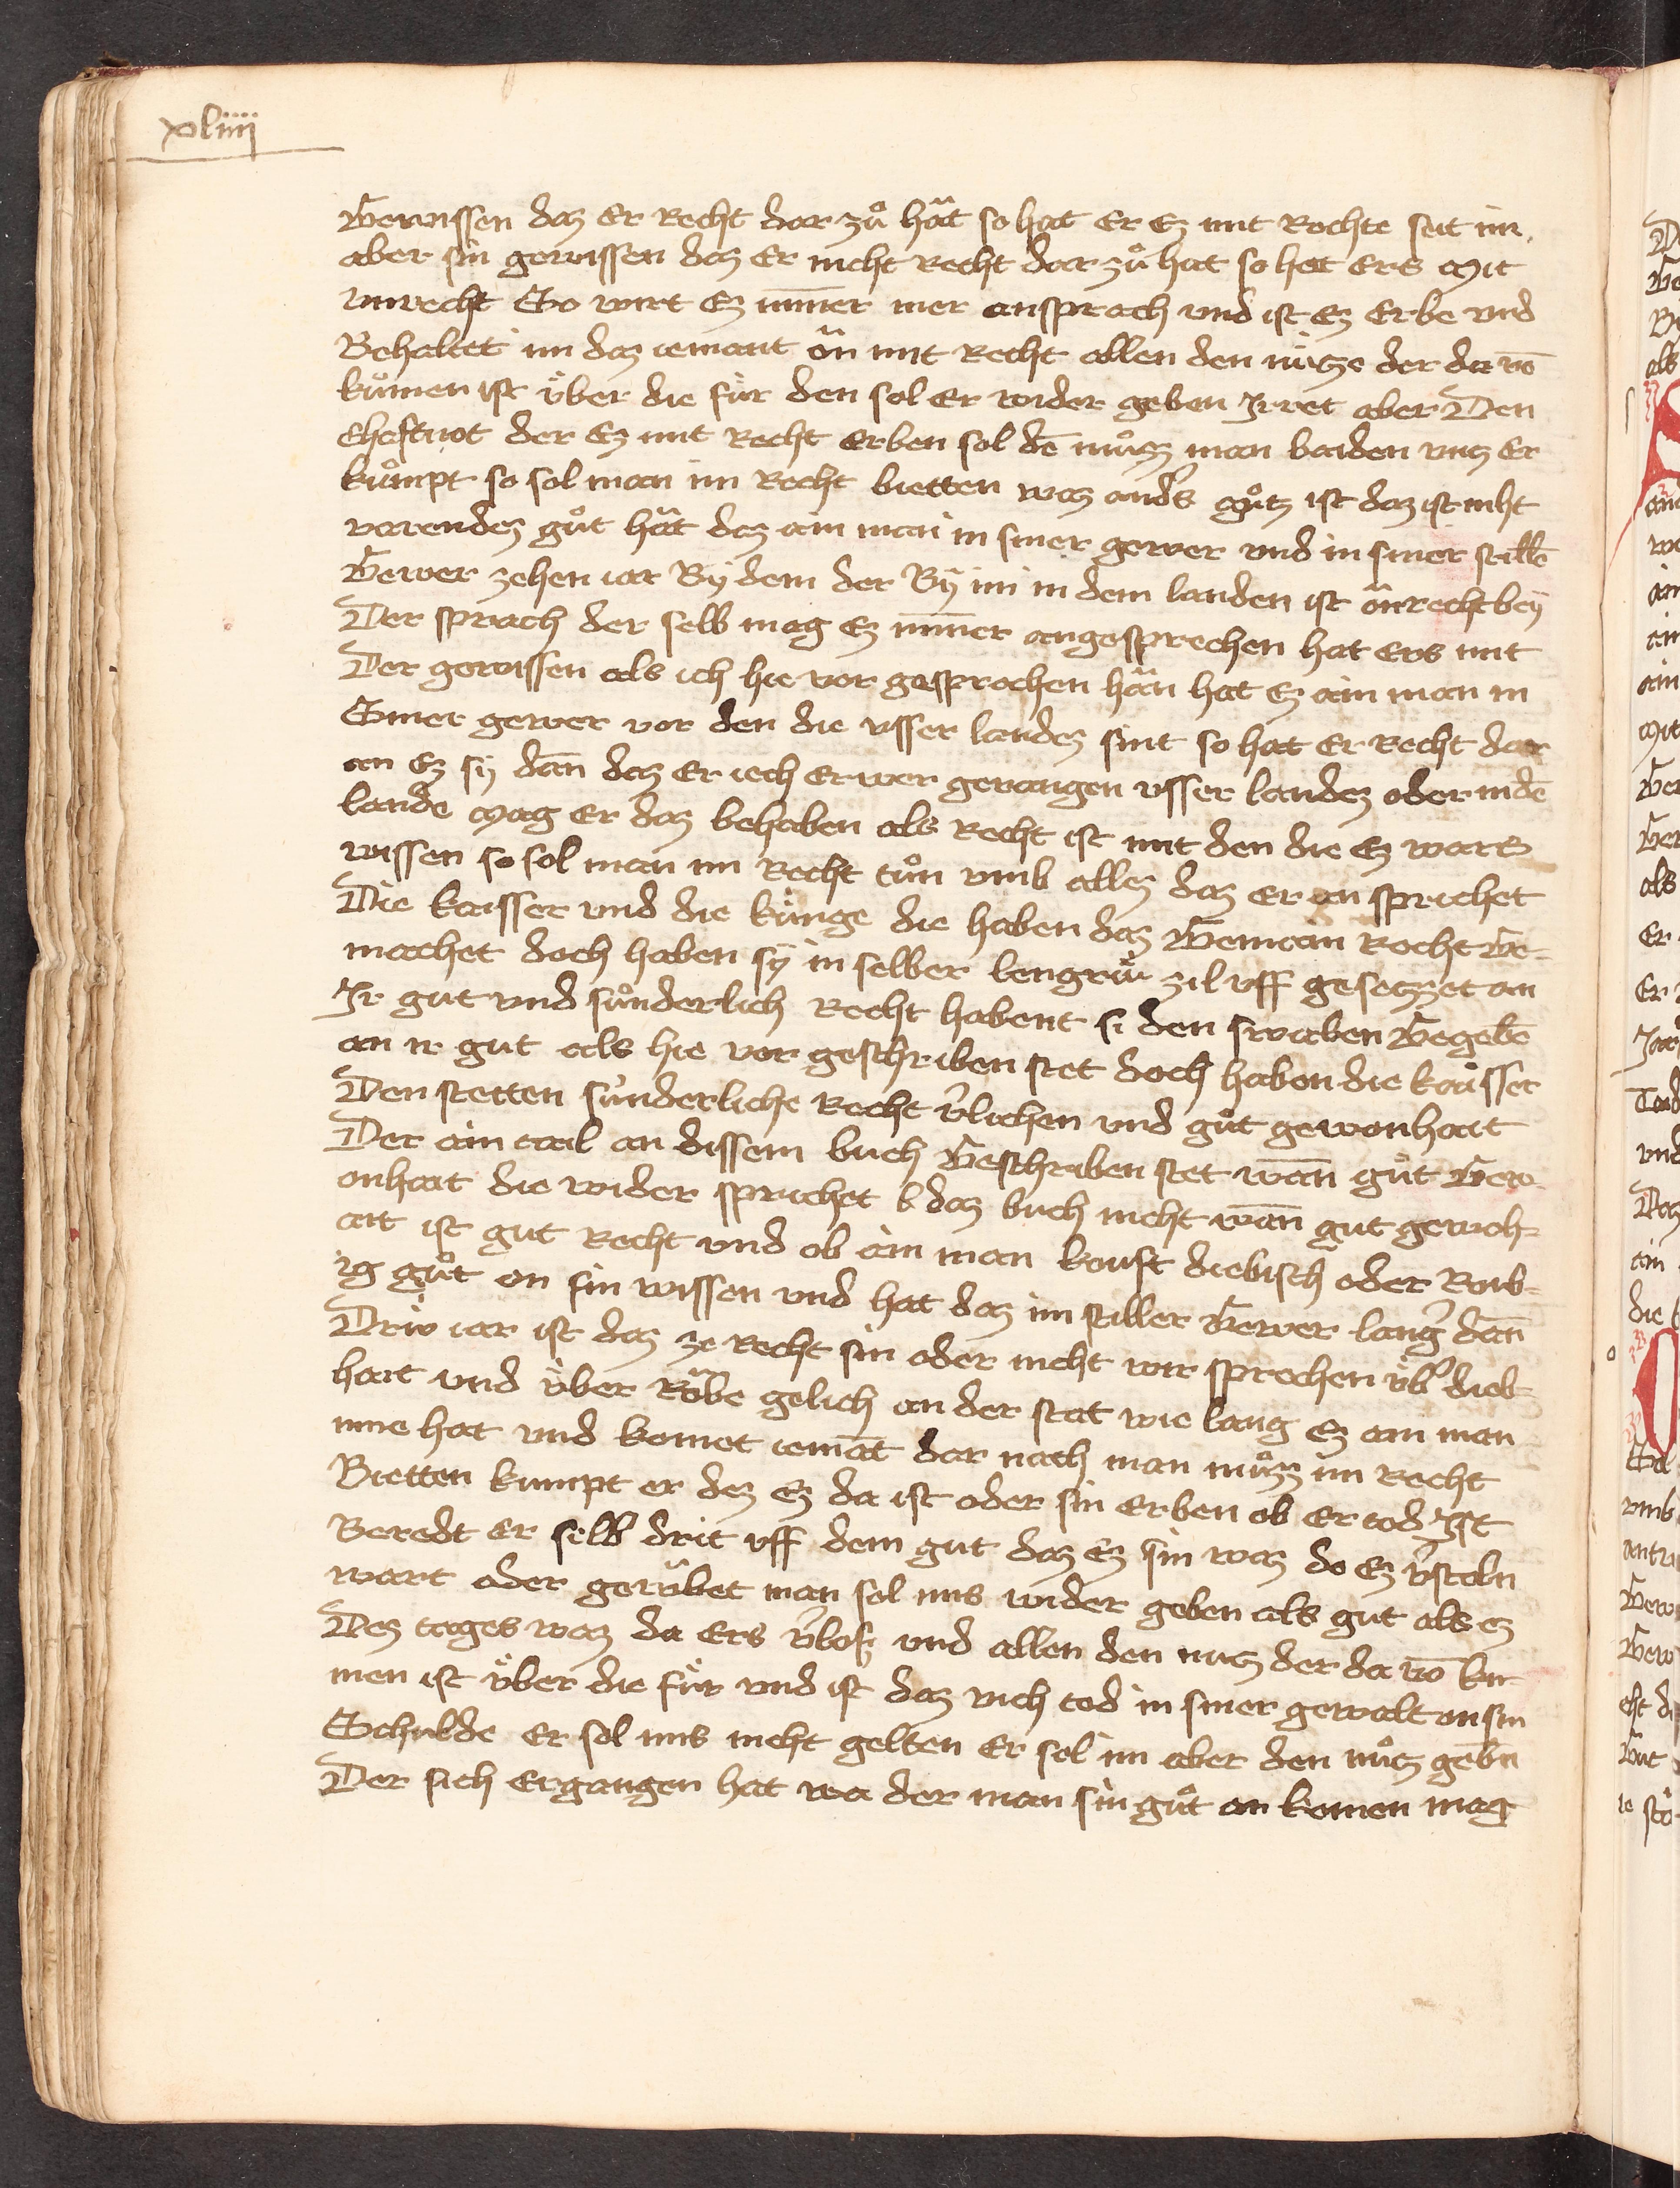 xliiii
Gewissen daz Er Recht dar zuͦ hât so hat Er Ez mit Rechte seit im
aber sin gewissen daz Er nicht Recht dar zuͦ hat so hat Ers mit
vnrecht So wirt Ez nym̄er mer ansprach vnd ist Ez Erbe vnd
Behaltet im daz iemant ân mit Recht allen den nutze der da vō
kuͦmen ist uͤber die fuͤr den sol Er wider geben Irret aber Den
Ehaftnot der Ez mit Recht Erben sol dē muͦz man baiden vntz Er
kuͦmpt so sol man im Recht bietten waz anders guͦtz ist daz ist niht
varendez guͦt hât daz ain man in siner gewer vnd in siner stillē
Gewer zehen iar By dem der By im in dem landen ist ânrecht bey
Der sprach der selb mag Ez nym̄er angesprechen hat Ers mit
Der gewissen als ich hie vor gesprochen hân hat Ez ain man in
Siner gewer vor den die vsser landez sint so hat Er Recht dar
an Ez sy dān daz Er iech Er wer gevangen vsser landez oder in dē
lande mag Er daz behaben als Recht ist mit den die Ez wars
wissen so sol man im Recht tuͦn vmb allez daz Er an sprichet
Die kaisser vnd die kuͤnge die haben daz Gemain Recht Ge-
machet doch haben sy in selber lengruͤ zil vff gesetzzet an
Ir gut vnd suͦnderlich Recht habent si den swaben Gegebē
an ir gut als hie vor geschriben stet doch haben die kaisser
Den stetten sunderliche Recht v̓lichen vnd guͦt gewonhait
Der ain tail an dissem buch Geschriben stet wān guͦt Gew-
onhait die wider sprichet daz buch nicht wān gut gewoh-
ait ist gut Recht vnd ob ain man kouft diebisch oder Roub-
ig guͦt on sin wissen vnd hat daz im stiller Gewer lang̓ dān
Driw iar ist daz ze Recht sin oder nicht wir sprechen uͤb̓ dieb-
hait vnd uͤber Rôbe gelich an der stat wie lang Ez ain man
inne hat vnd komet iemāt dar nach man muͦz im Recht
Bietten kumpt er dez Ez da ist oder sin Erben ob Er tod Ist
Beredt Er selb drit vff dem gut daz Ez sin waz do Ez v̓stoln
wart oder geroͮbet man sol ims wider geben als gut als ez
Dez tages waz da Ers v̓los vnd allen den nutz der da vō ku-
men ist uͤber die fuͤr vnd ist daz vich tod in siner gewalt an sin
Schulde Er sol ims nicht gelten Er sol im aber den nuͦtz gebn̄
Der sich Ergangen hat wa der man sin guͦt an komen mag